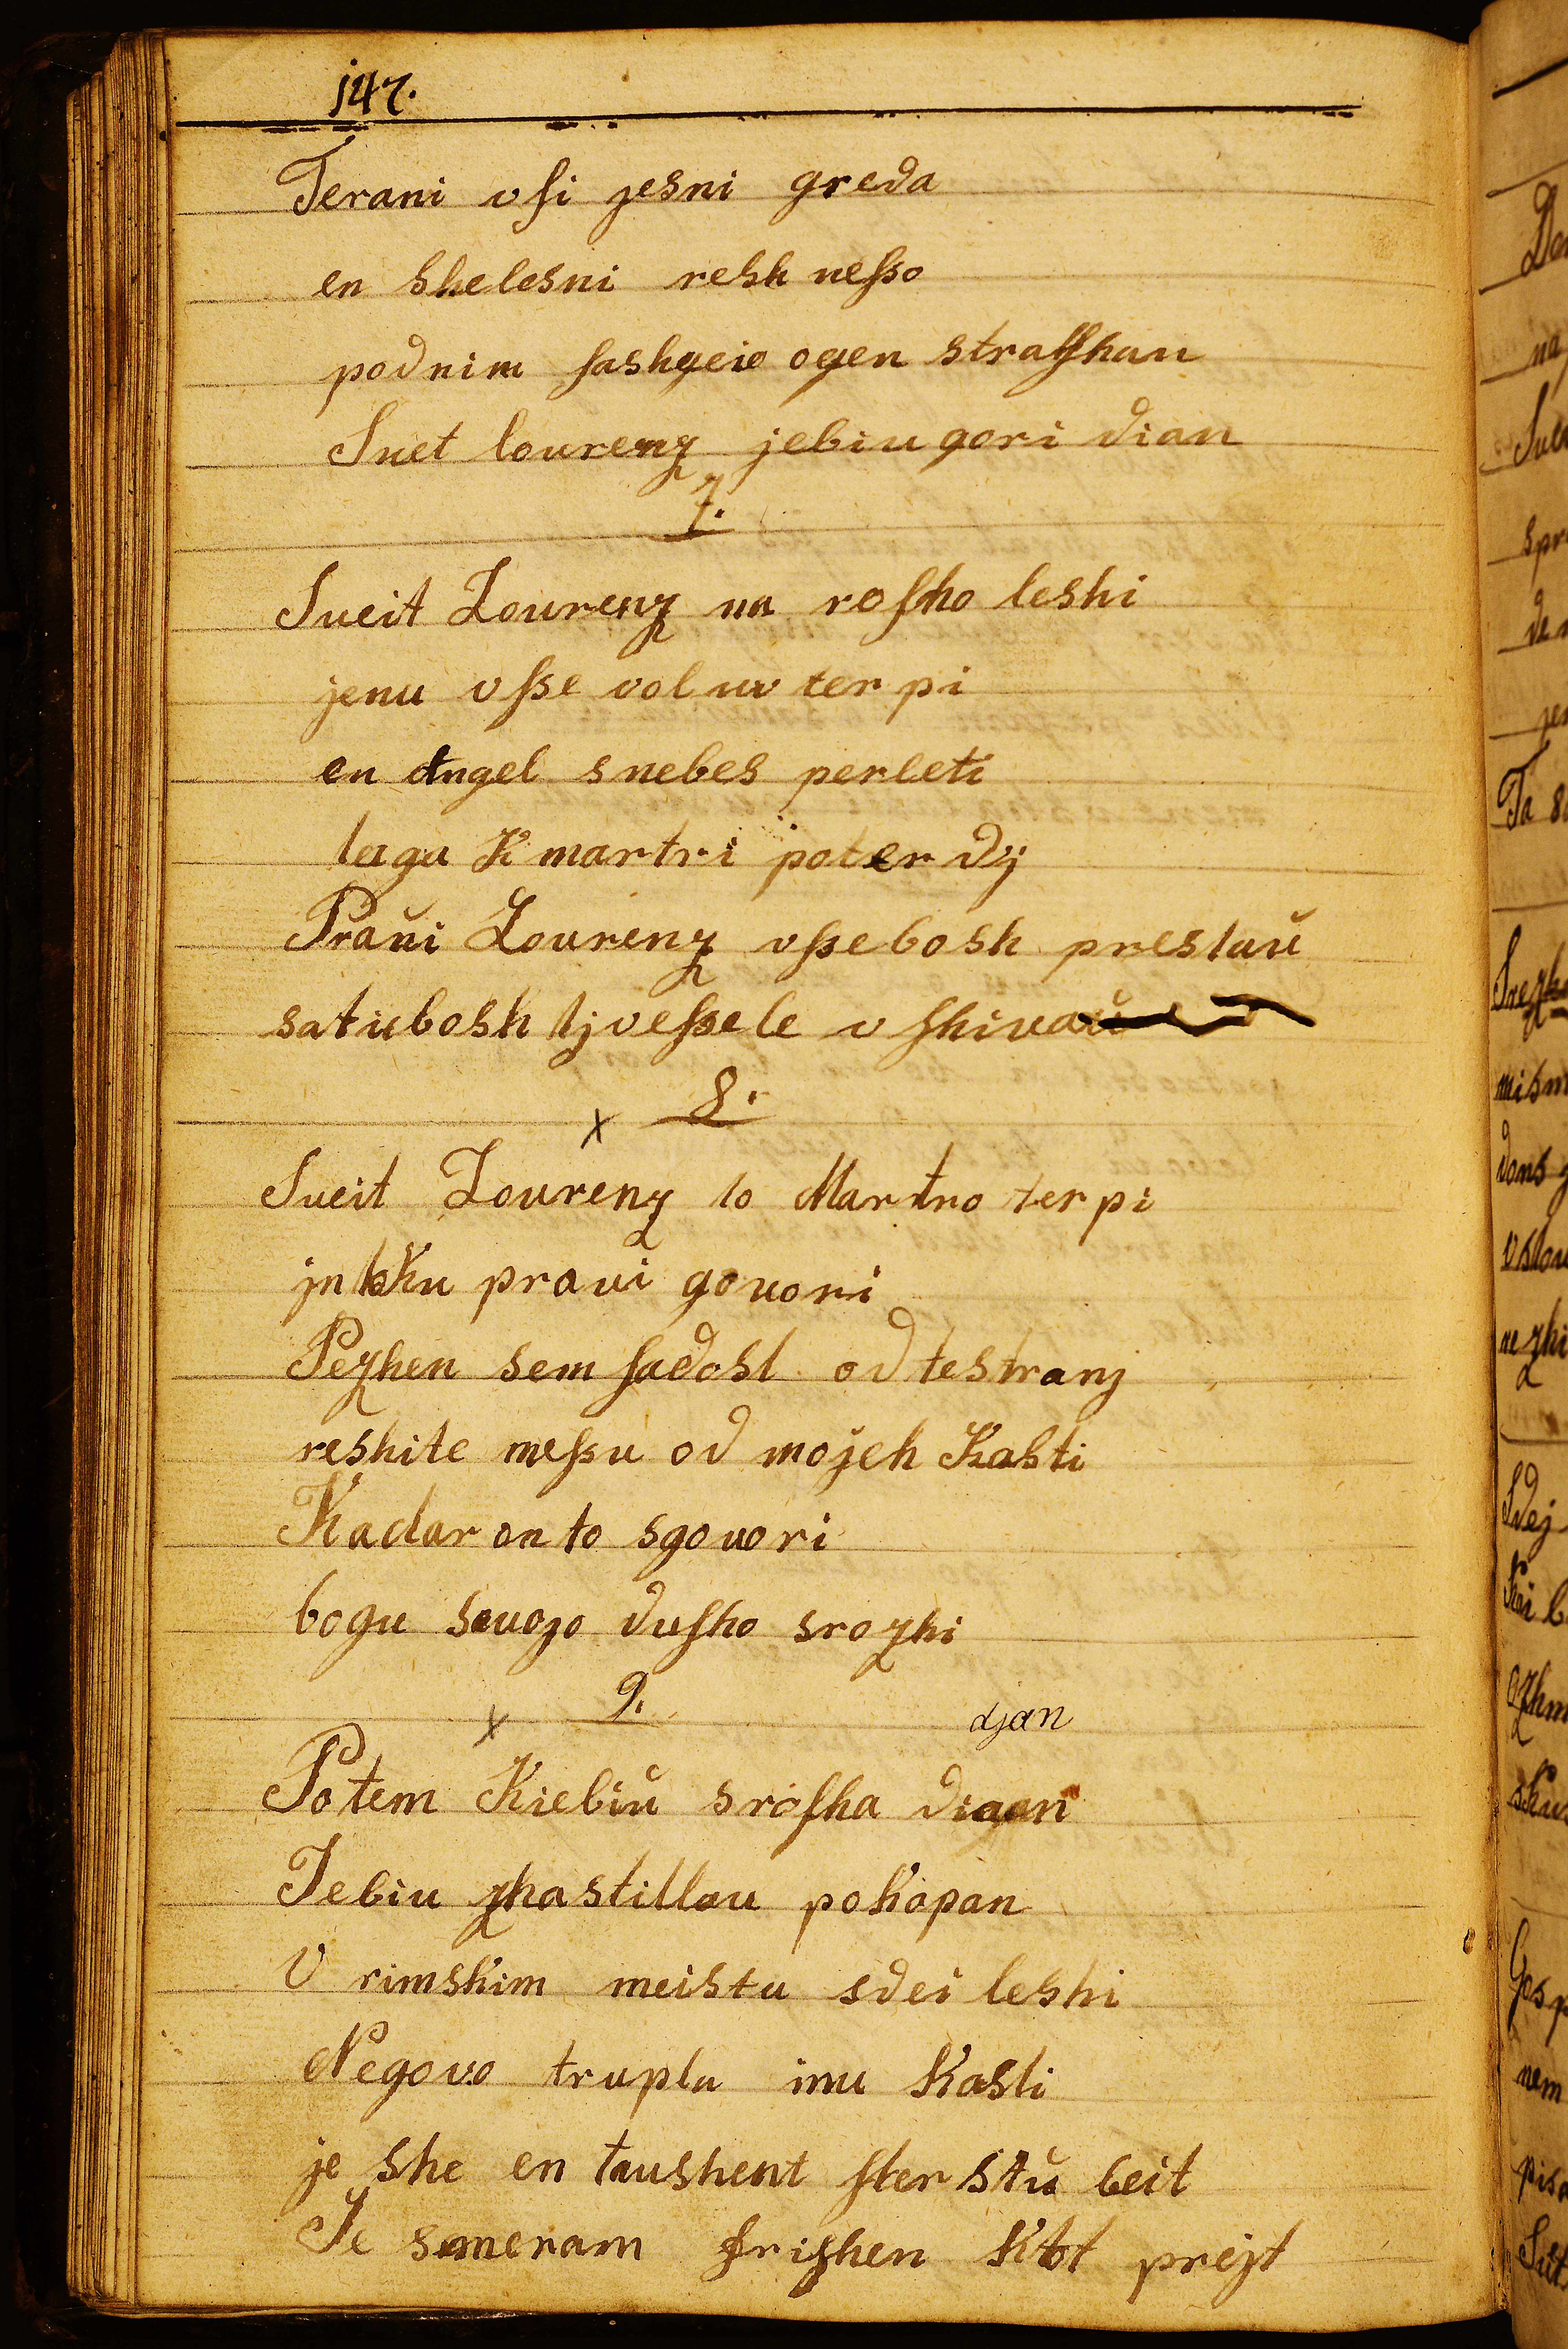 j47.
Terani vſi jesni greda
en shelesni resh neſso
podnim ſashgeio ogen straſhan
Suet lourenz jebiu gori dian
7.
Sueit Lourenz na roſho leshi
jenu vſse voluv ter pi
en Angel snebes perleti
lega K martri poter dÿ
Praŭi Lourenz vſse bosh prestaŭ
satubosh tj veſsele v ſhivaŭ
8.
x
Sueit Lourenz to Martro ter pi
jn tKu praui gouori
Pezhen sem ſadost od testranj
reshite meſsu od mojeh Kasti
Kadar on to sgouori
bogu suojo duſho srozhi
9.
x
djan
Potem Kiebiŭ sroſha djan
Jebiu zhastillau poKopan
V rimsKim meistu sdei leshi
Negovo truplu inu Kasti
je she en taushent ſter stŭ leit
Je smeram friſhen Ktot prejt